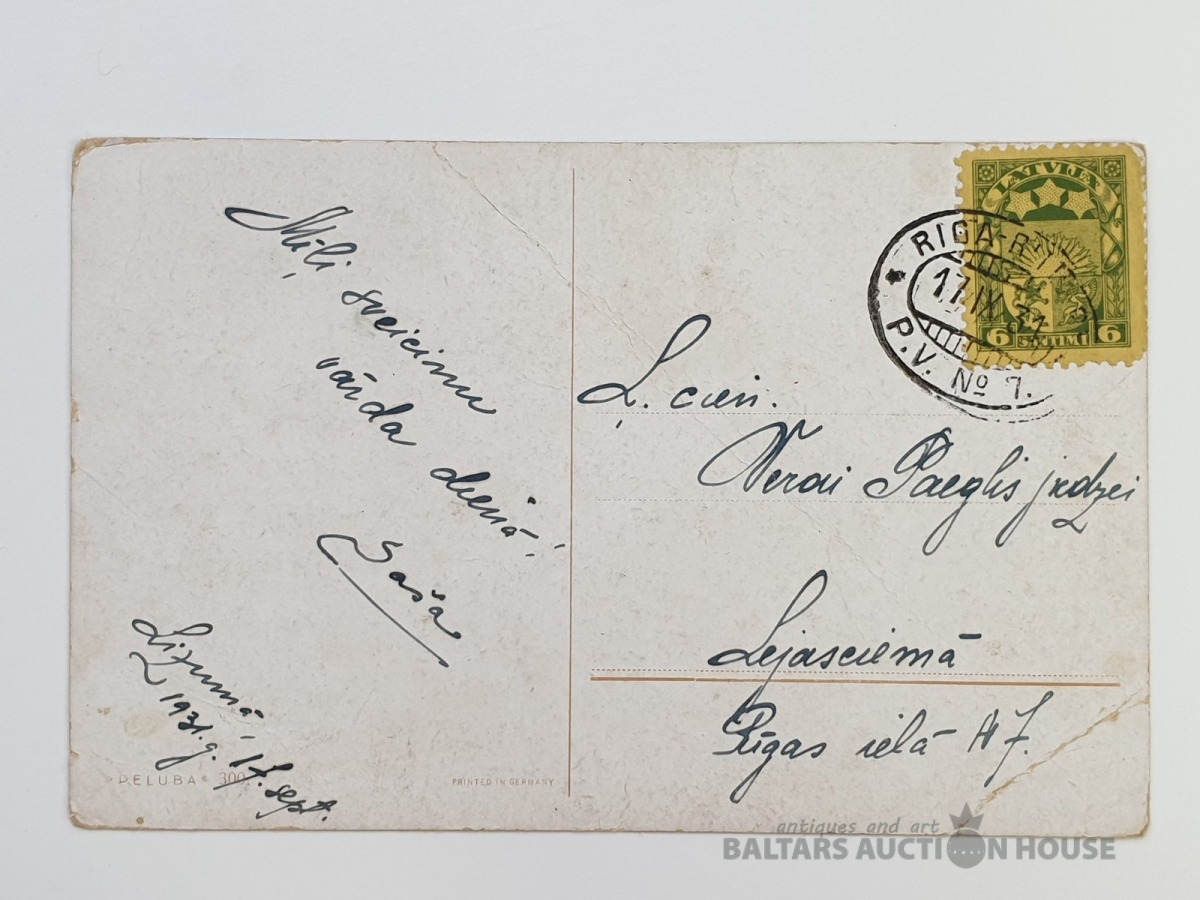 Mīļi sveicinu
vārda dienā!
Saša
Lizumā,
1931.g. 17. sept.
PELUBA 300
PRINTED IN GERMANY
LATVIJA
6 SANTIMI 6
RIGA-
17 IX 31
P.V. № 7.
Ļ. cien.
Verai Paeglis jkdzei
Lejasciemā
Rīgas ielā # 7.
antiques and art
BALTARS AUCTION HOUSE